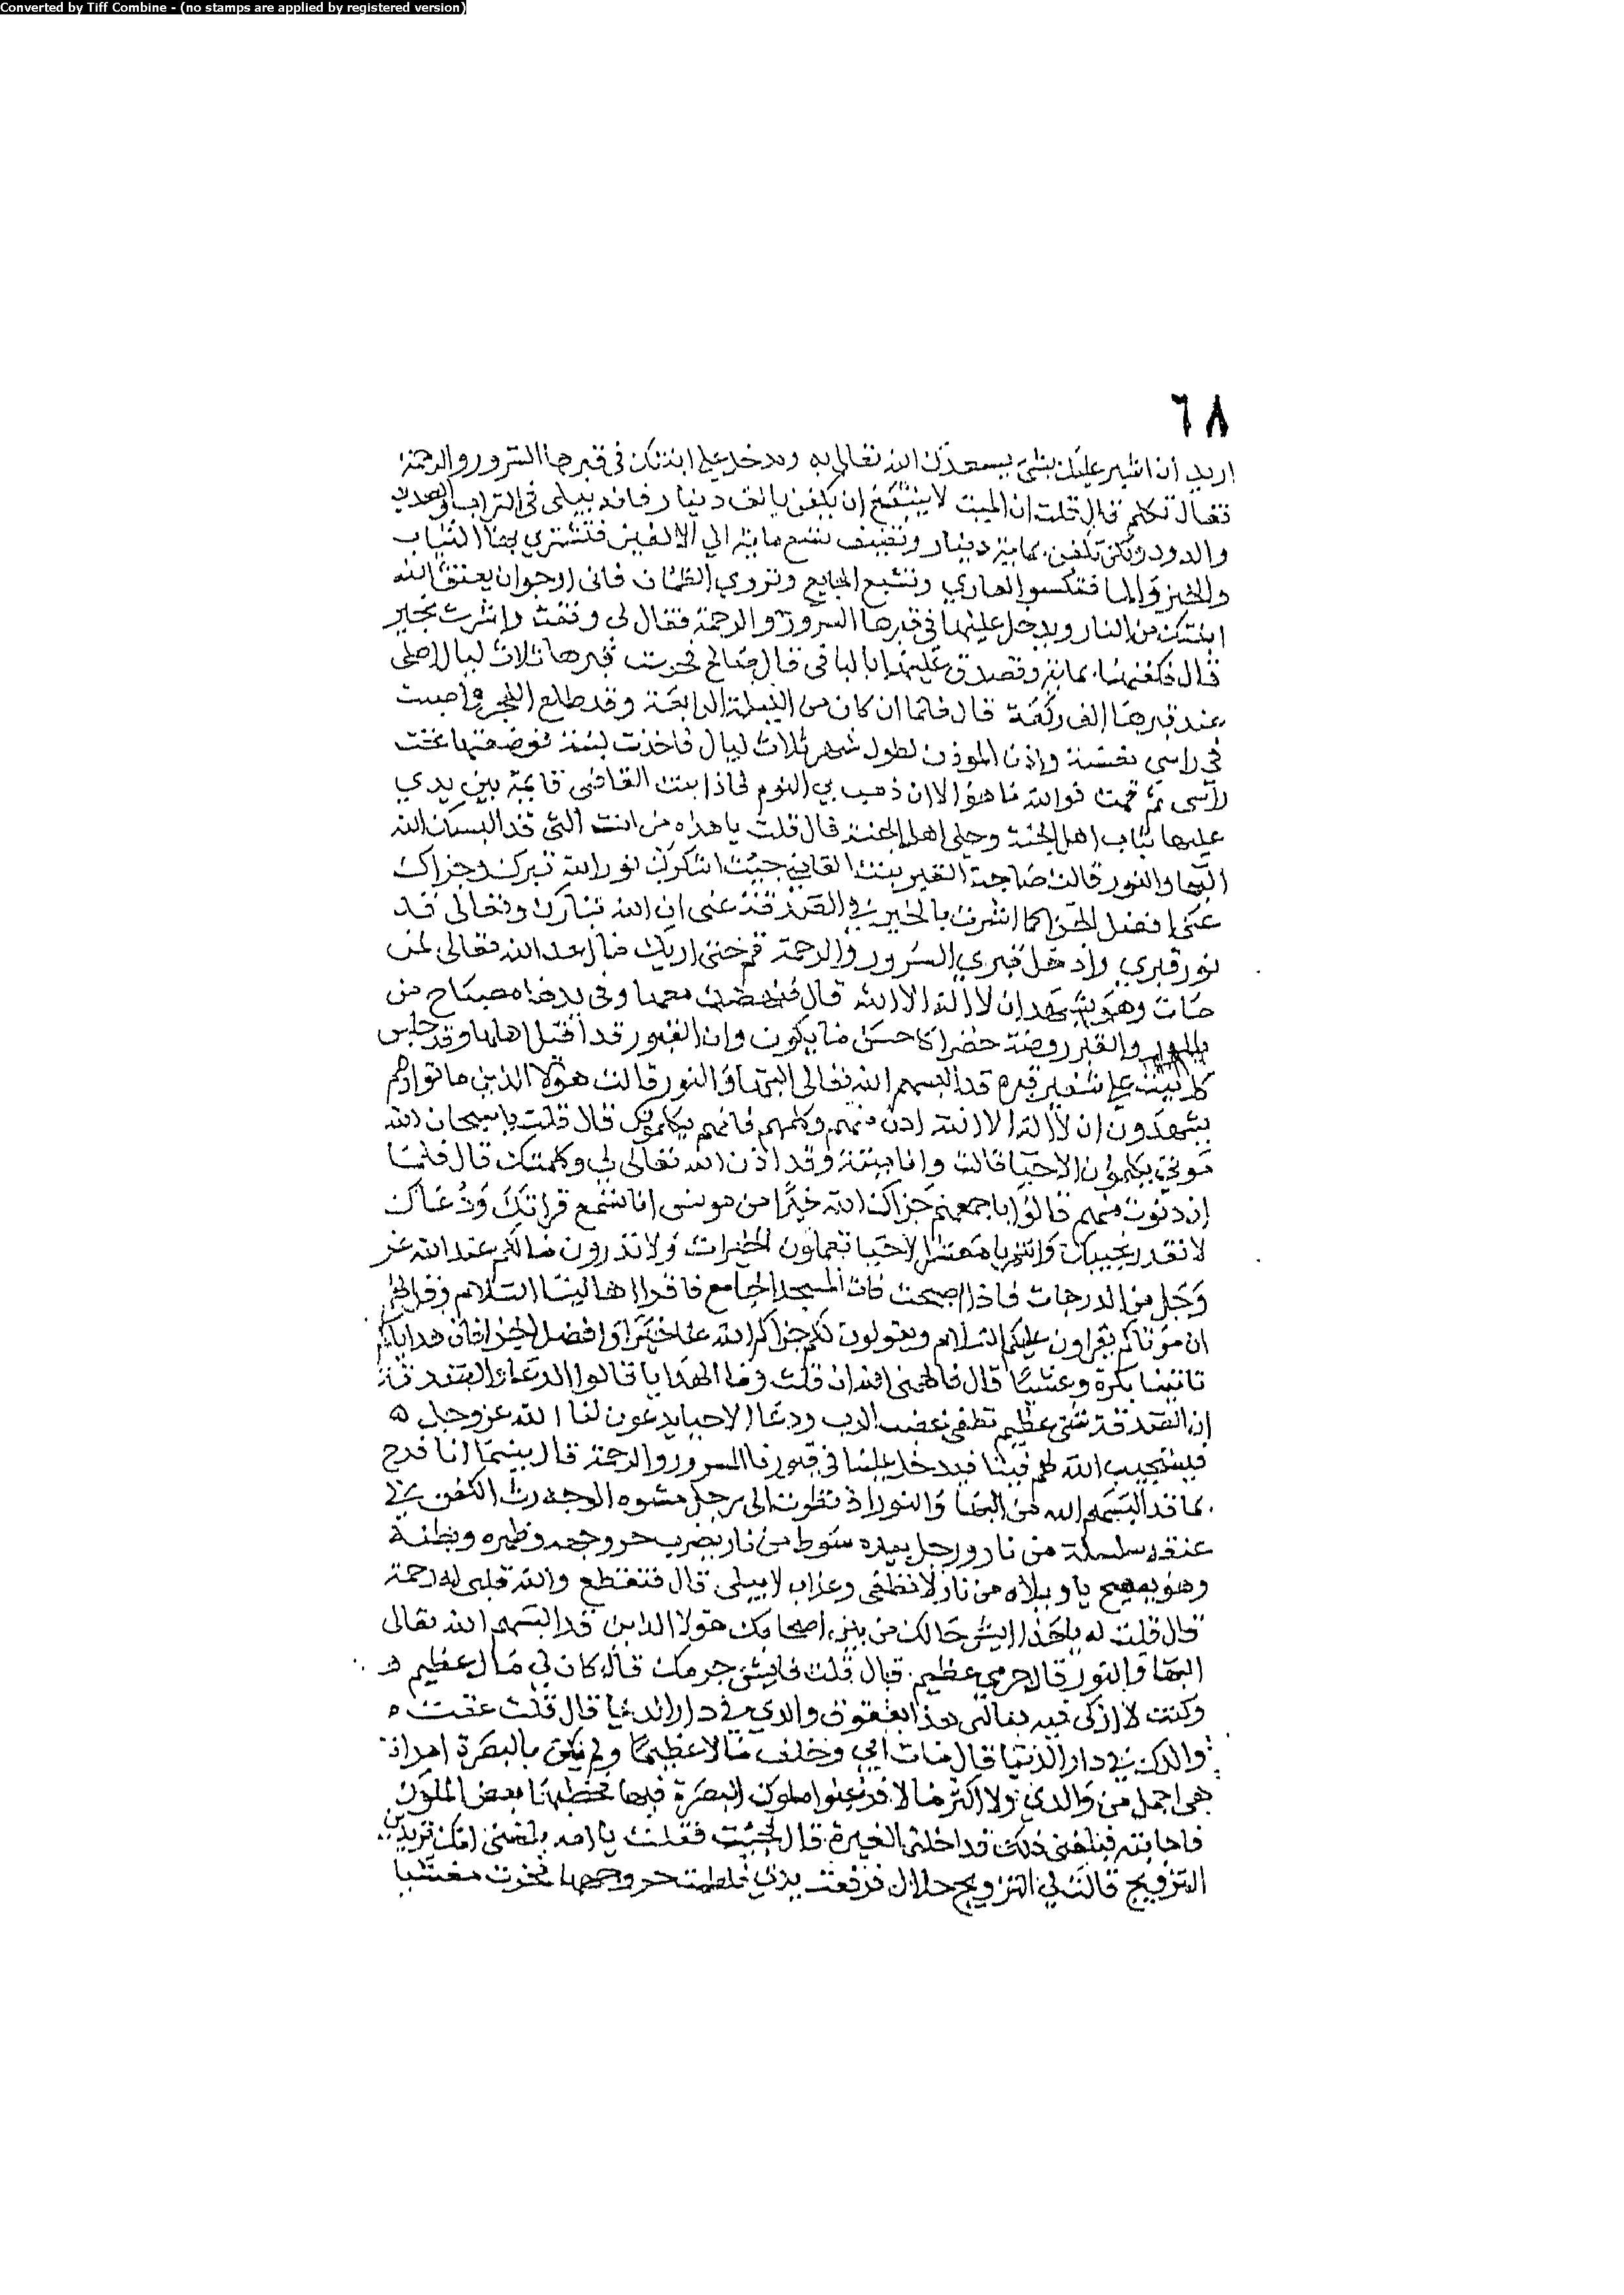 Converted by Tiff Combine - (no stamps are applied by registered version)
٦٨
اريد ان اشير عليك بشئ يسعدك الله تعالى به ويدخل على ابنتك فى قبرها السرور والرحمة
فقال تكلم قال قلت ان الميت لا ينبغى ان يكفن بالف دينار فانه يبلى فى التراب والصديد
والدود ولكن تكفن بماية دينار وتضيف تسع ماية الي الالفين فتشتري بهذا الثياب
والخبز والما فتكسوا العاري وتشبع الجايع وتروي الظمان فانى ارجوا ان يعتق الله
ابنتك من النار ويدخل عليها فى قبرها السرور والرحمة فقال لى وفقت واشرت بخير
قال فكفنها بماية وتصدق عليها بالباقى قال صالح فحرت قبرها ثلاث ليال اصلى
عند قبرها الف ركعة قال فلما ان كان من الليلة الرابعة وقد طلع الفجر واصبت
فى راسي نعسة واذن الموذن لطول سهر ثلاث ليال فاخذت لبنة فوضعتها تحت
راسى ثم نمت فوالله ما هو الا ان ذهب بي النوم فاذا بنت القاضى قايمة بين يدي
عليها ثياب اهل الجنة وحلى اهل الجنة قال قلت يا هذه من انت التى قد البسك الله
البها والنور قالت صاحبة القبر بنت القاضى جيت اشكرك نور الله قبرك وجزاك
عنى افضل الجزا كما اشرت بالخير فى الصدقة عنى ان الله تبارك وتعالى قد
نور قبري وادخل قبري السرور والرحمة قم حتى اريك ما اعد الله تعالى لمن
مات وهو يشهد ان لا اله الا الله قال فنهضت معها وفى يدها مصباح من
والقبر روضة خضرا كاحسن ما يكون وان القبور قد اقبل اهلها وقد جلس
كل ميت على شفير قبره قد البسهم الله تعالى البها والنور قالت هولا الذين ماتوا وهم
يشهدون ان لا اله الا الله ادن منهم وكلمهم فانهم يكلموك قال قلت يا سبحان الله
موتى يكلمون الاحيا قالت وانا ميتة وقد اذن الله تعالى لي وكلمتك قال فلما
ان دنوت منهم قالوا باجمعهم جزاك الله خيرا من مونس انا نسمع قراتك ودعاك
لا نقدر نجيبك وانتم يا معشر الاحيا تعملون الخيرات ولا تدرون ما لكم عند الله عز
وجل من الدرجات فاذا اصبحت فات المسجد الجامع فاقرا اهالينا السلام وقل لهم
ان موتاكم يقراون عليكم السلام ويقولون لكم جزاكم الله عنا خيرا وافضل الجزا فان هداياكم
تاتينا بكرة وعشيا قال فالهمنى الله ان قلت وما الهدايا قالوا الدعا والصدقة
ان الصدقة شى عظيم تطفى غضب الرب ودعا الاحيا يدعون لنا الله عز وجل ه
فيستجيب الله لهم فينا فيدخل علينا فى قبورنا السرور والرحمة قال بينما انا فرح
بما قد البسهم الله من البها والنور اذ نظرت الى رجل مشوه الوجه رث الكفن فى
عنقه سلسلة من نار ورجل بيده سوط من نار يضرب حر وجهه وظهره وبطنه
وهو يصيح يا ويلاه من نار لا تطفى وعذاب لا يبلى قال فتقطع والله قلبى له رحمة
قال قلت له يا هذا ايش حالك من بين اصحابك هولا الذين قد البسهم الله تعالى
البها والنور قال جرمي عظيم قال قلت فايش جرمك قال كان لي مال عظيم
وكنت لا ازكى فيه بعقوق والدي فى دار الدنيا قال قلت عققت ه
والدك فى دار الدنيا قال مات ابي وخلف مالا عظيما ولم يكن بالبصرة امراة
هى اجمل من والدتي ولا اكثر مالا فرغبوا ملوك البصرة فيها فخطبها بعض الملوك
فاجابته فبلغنى ذلك فداخلتنى الغيرة قال فجيت فقلت يا امه بلغنى انك تريدين
التزويج قالت لي التزويج حلال فرفعت يدي فلطمت حر وجهها فخرت مغشيا